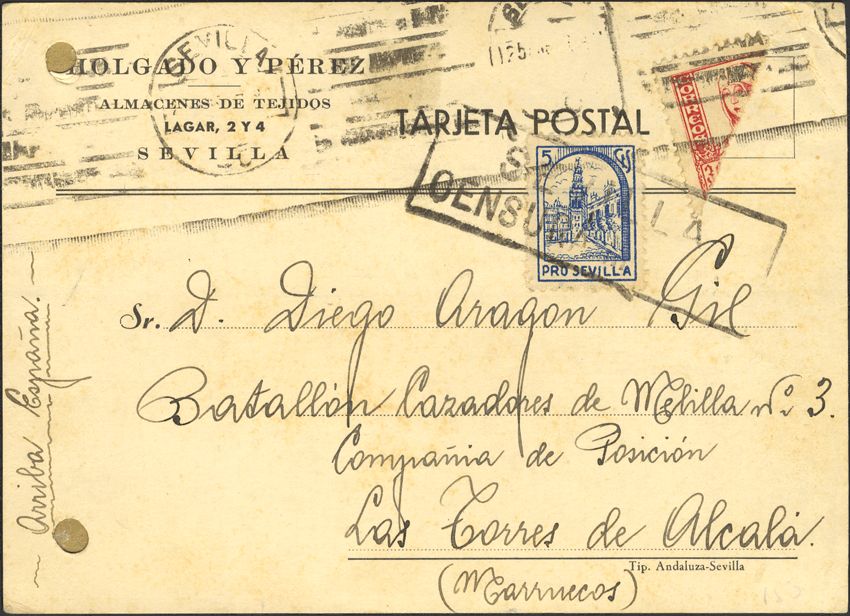 HOLGADO Y PÉREZ
ALMACENES DE TEJIDOS
LAGAR, 2 Y 4
SEVILLA
SEVILLA
TARJETA POSTAL
CORREOS
5 CTS
PRO SEVILLA
CENSURA
Sr. D. Diego Aragon Gil
Batallón Cazadores de Melilla Nº 3.
Compañia de Posición
Las Torres de Alcalá.
(Marruecos)
Tip. Andaluza-Sevilla
- Arriba España. -